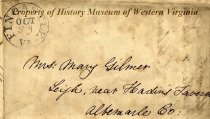 Property of History Museum of Western Virginia
FIN
OCT
23
Mrs. Mary Gilmer
Leigh, near Hadin's Tavern
Albemarle Co: